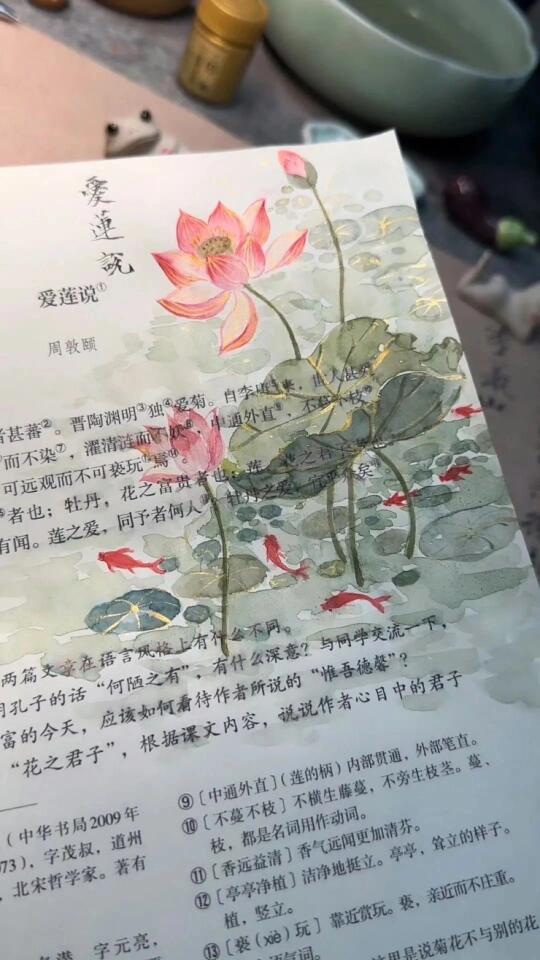 愛蓮說
爱莲说①
周敦颐
者甚蕃②。晋陶渊明③独④爱菊。自李唐⑤来，世人甚爱
而不染⑦，濯清涟而不妖⑧，中通外直⑨，不蔓不枝⑩
可远观而不可亵玩⑬焉⑭
者也；牡丹，花之富贵者也；莲，花之君子者也
有闻。莲之爱，同予者何人？牡丹之爱，宜乎众矣
两篇文章在语言风格上有什么不同。
用孔子的话“何陋之有”，有什么深意？与同学交流一下，
富的今天，应该如何看待作者所说的“惟吾德馨”？
“花之君子”，根据课文内容，说说作者心目中的君子
（中华书局2009年
073），字茂叔，道州
，北宋哲学家。著有
名潜，字元亮，
⑨［中通外直］（莲的柄）内部贯通，外部笔直。
⑩［不蔓不枝］不横生藤蔓，不旁生枝茎。蔓、
枝，都是名词用作动词。
⑪［香远益清］香气远闻更加清芬。
⑫［亭亭净植］洁净地挺立。亭亭，耸立的样子。
植，竖立。
⑬［亵（xiè）玩］靠近赏玩。亵，亲近而不庄重。
语气词。
这里是说菊花不与别的花